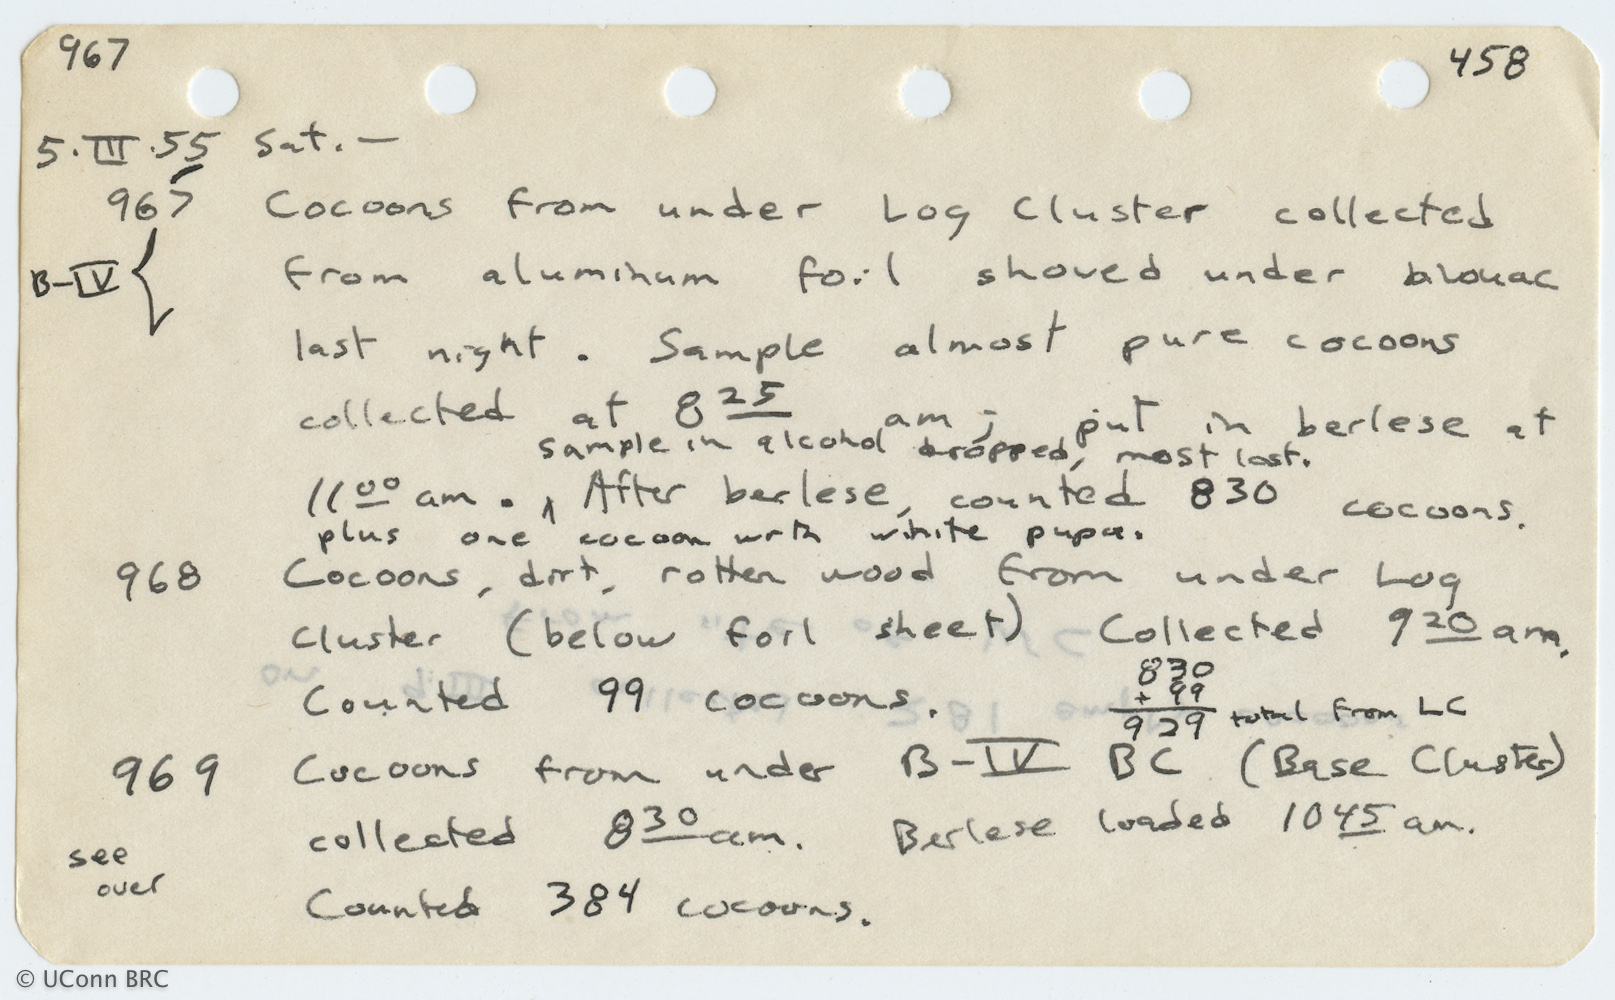 967
458
5.III.55 Sat. —
967 Cocoons from under Log Cluster collected
B-IV { from aluminum foil shoved under bivouac
last night. Sample almost pure cocoons
collected at 8 25 am; put in berlese at
sample in alcohol dropped, most lost.
11 00 am. ^ After berlese, counted 830 cocoons.
plus one cocoon with white pupa.
968 Cocoons, dirt, rotten wood from under Log
Cluster (below foil sheet) Collected 9 20 am.
830
+ 99
Counted 99 cocoons. 929 total from LC
969 Cocoons from under B-IV BC (Base Cluster)
collected 8 30 am. Berlese loaded 10 45 am.
see
over
Counted 384 cocoons.
© UConn BRC